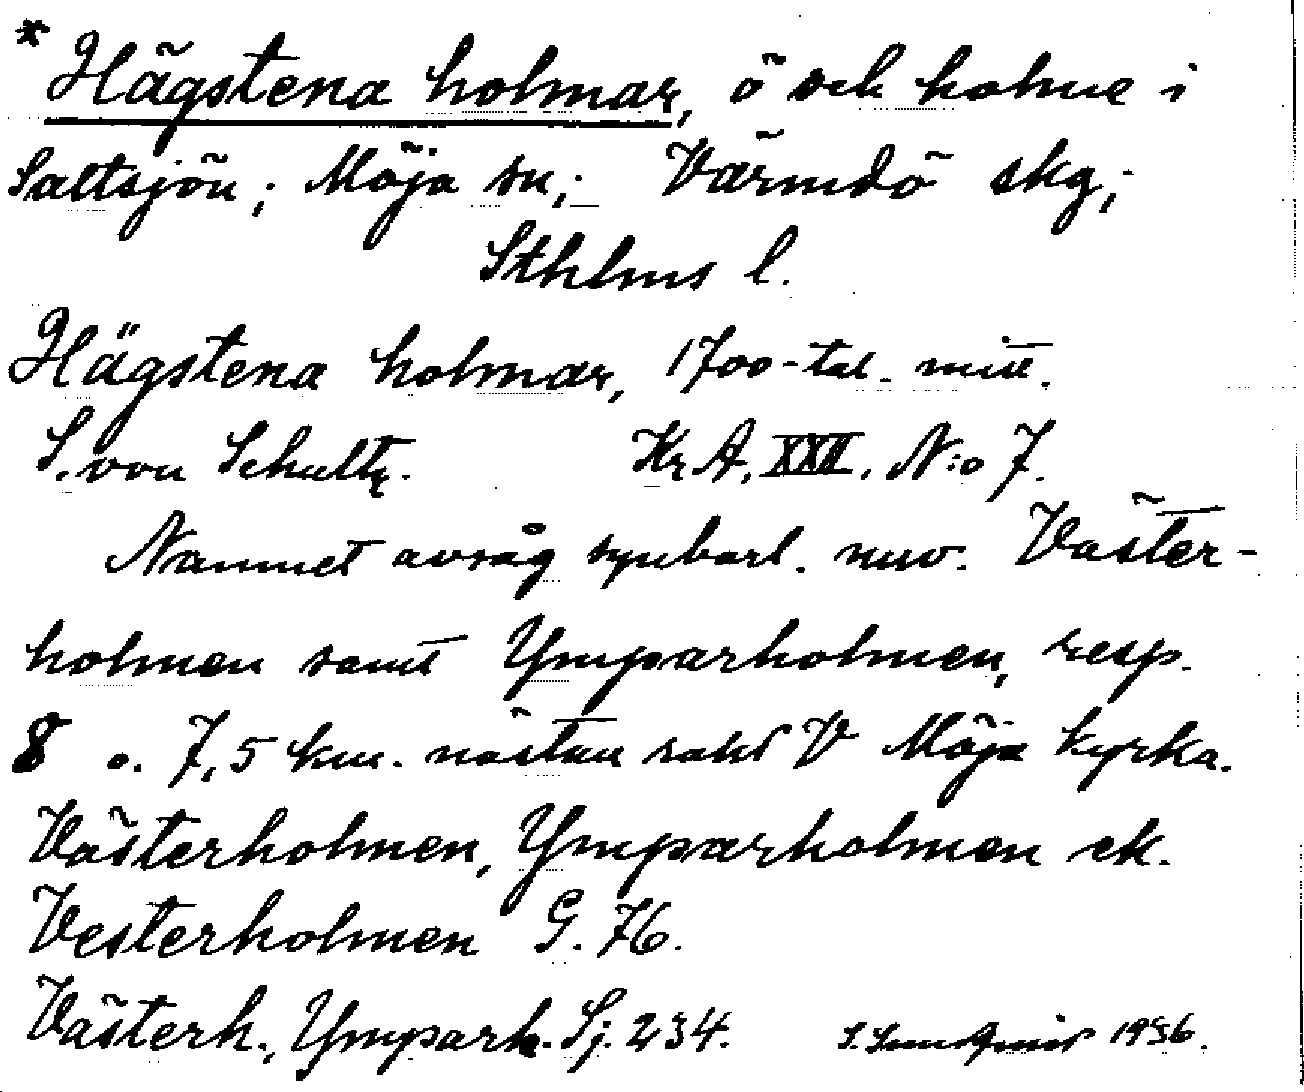 * Hägstena holmar, ö och holme i
Saltsjön; Möja sn; Värmdö skg;
Sthlms l.
Hägstena holmar, 1700-tal. mitt.
S. von Schultz. Kr A, XXII. N:o 7.
Namnet avsåg synbarl. nuv. Väster-
holmen samt Ymparholmen, resp.
8 o. 7,5 km. nästan rakt V Möja kyrka.
Västerholmen, Ymparholmen ek.
Vesterholmen G. 76.
Västerh., Ymparh. Sj. 234. 1936.